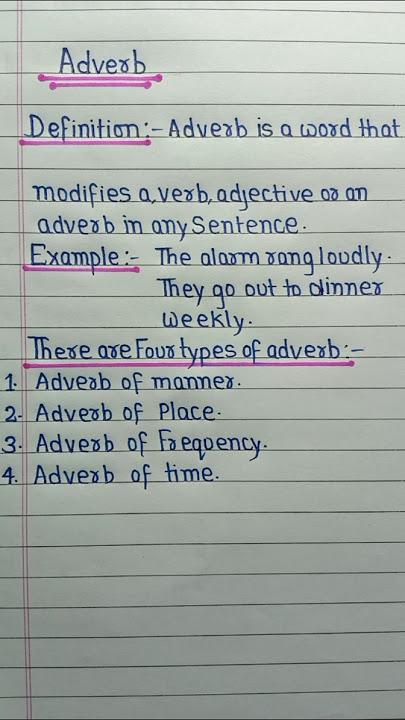 Adverb
Definition:- Adverb is a word that
modifies a, verb, adjective or an
adverb in any Sentence.
Example:- The alarm rang loudly.
They go out to dinner
weekly.
There are Four types of adverb:-
1. Adverb of manner.
2. Adverb of Place.
3. Adverb of Frequency.
4. Adverb of time.